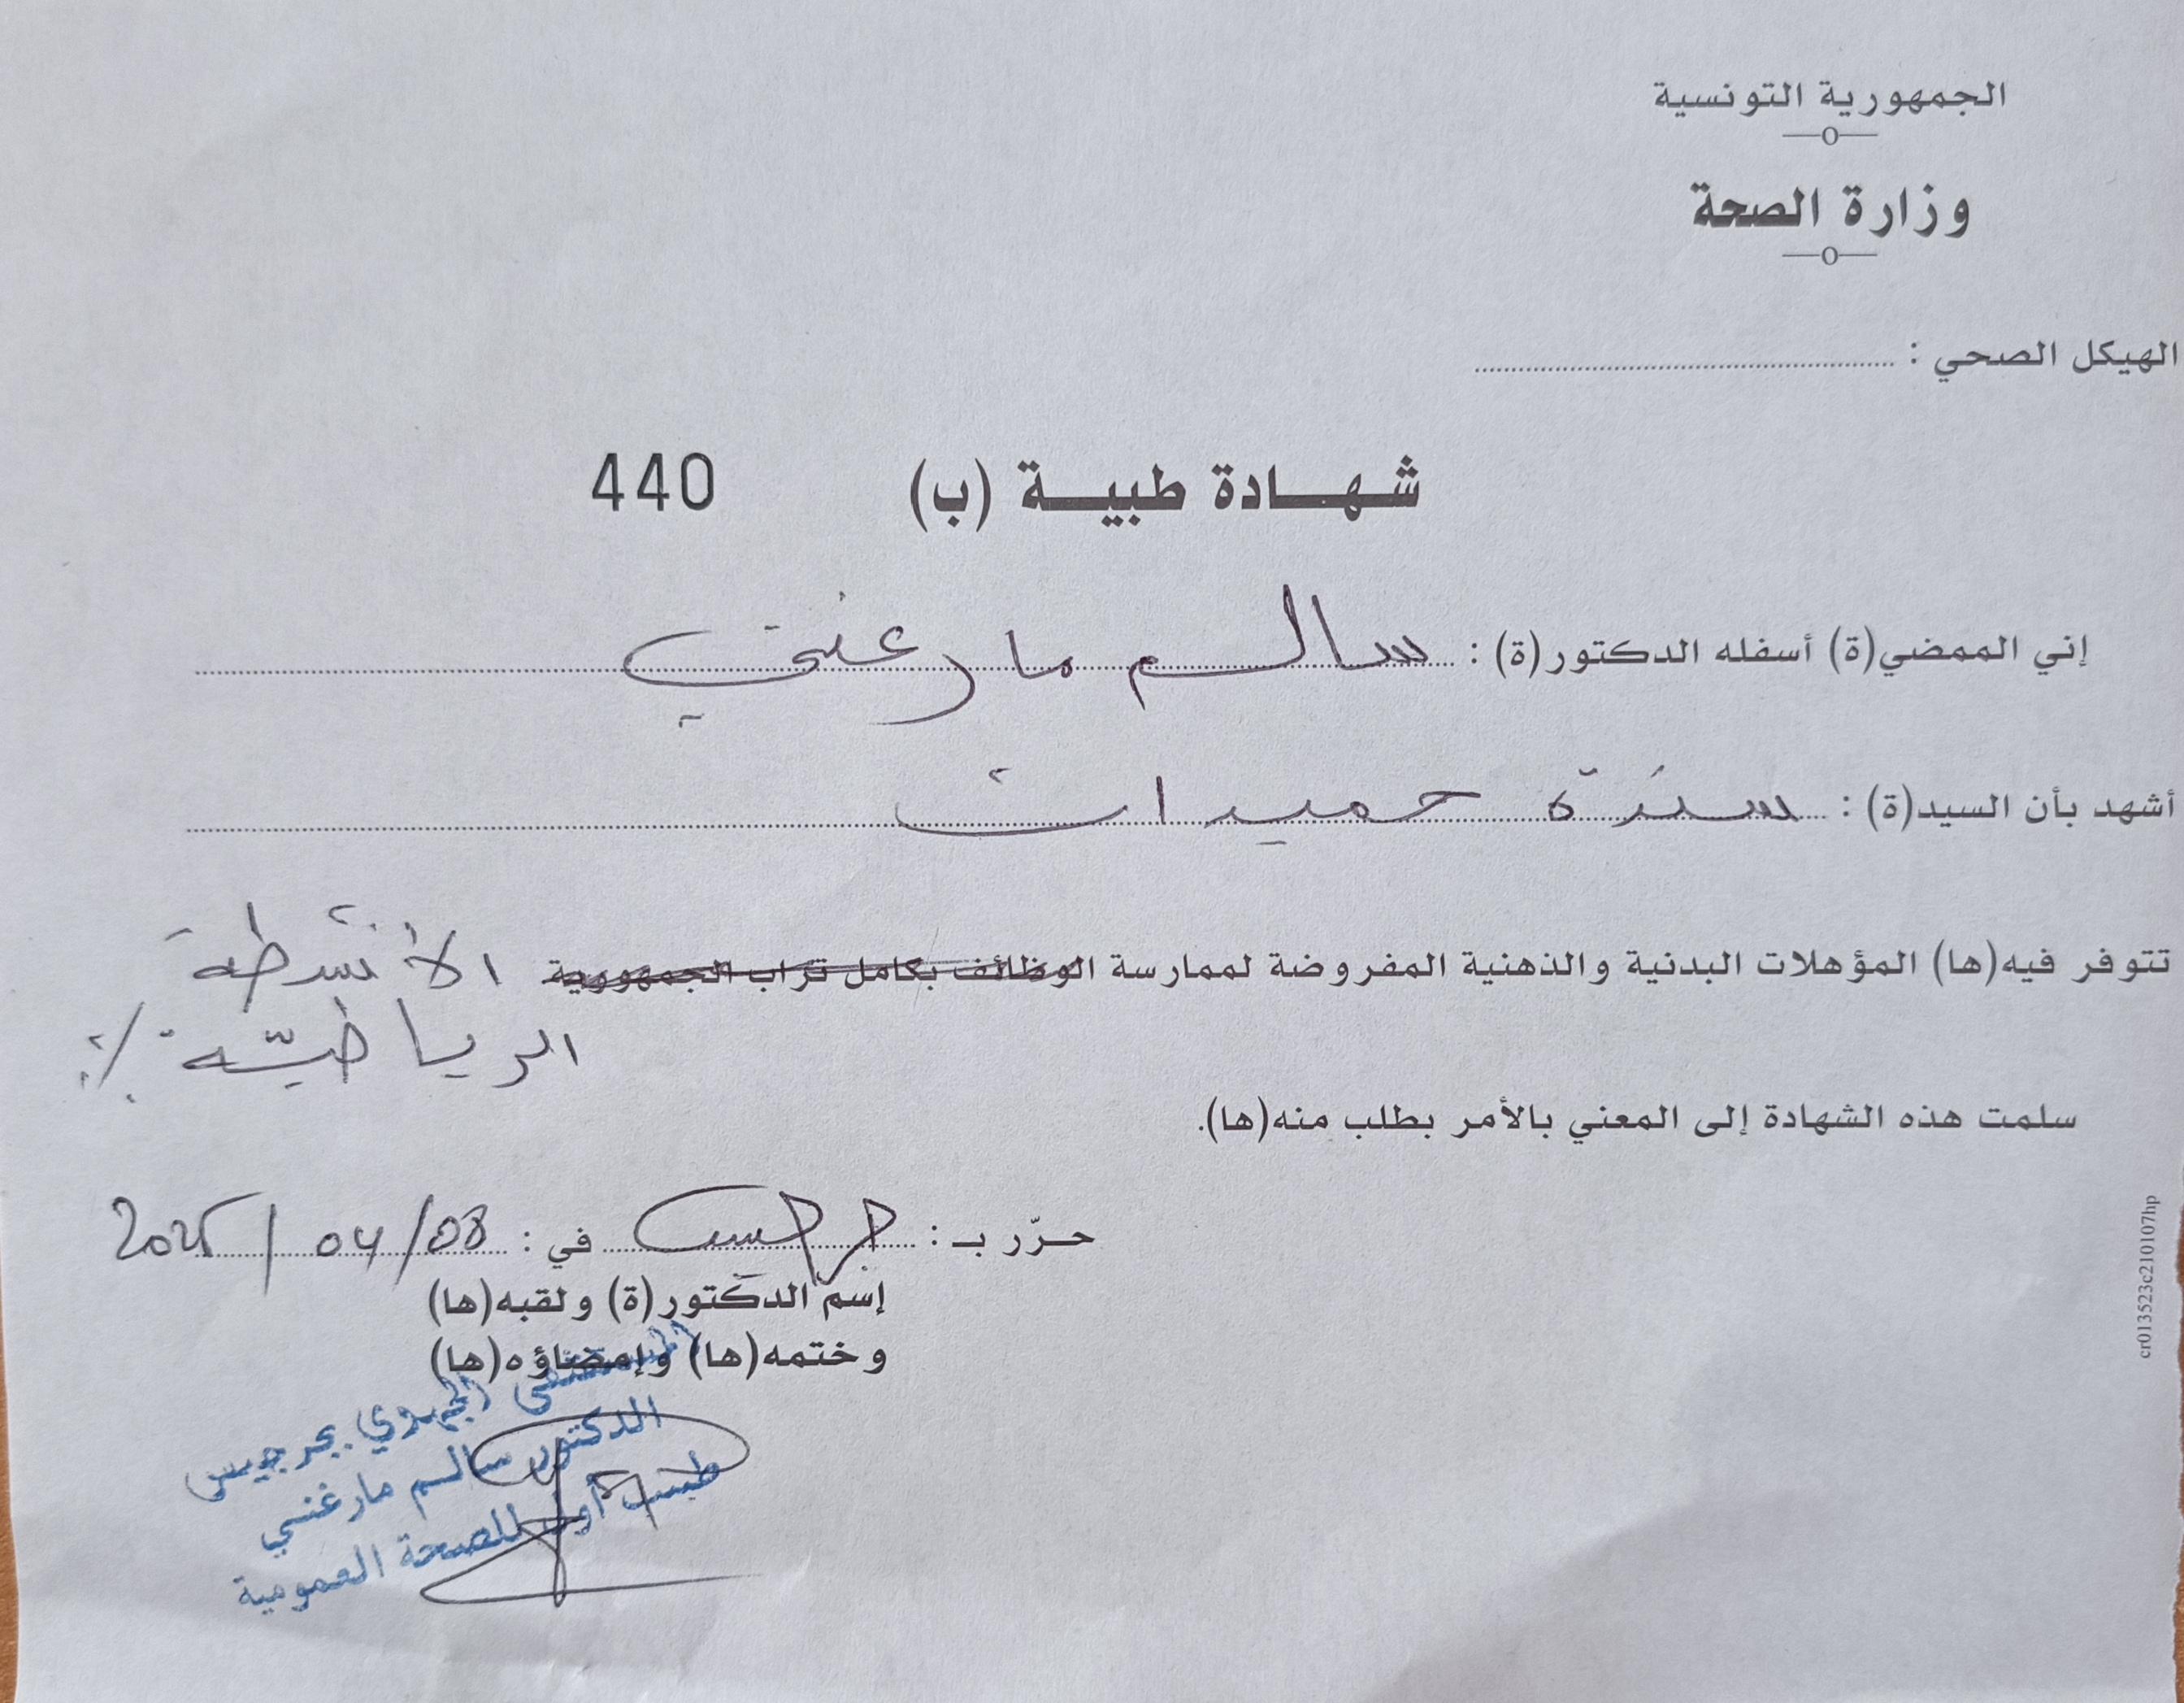 الجمهورية التونسية
—o—
وزارة الصحة
—o—
الهيكل الصحي :
شهادة طبية (ب) 440
إني الممضي(ة) أسفله الدكتور(ة) : سالم مارغني
أشهد بأن السيد(ة) : حميدات
تتوفر فيه(ها) المؤهلات البدنية والذهنية المفروضة لممارسة الوظائف بكامل تراب الجمهورية الأنشطة
الرياضيّة ./.
سلمت هذه الشهادة إلى المعني بالأمر بطلب منه(ها).
حرّر بـ : جرجيس في : 08/04/2025
إسم الدكتور(ة) ولقبه(ها)
وختمه(ها) وإمضاؤه(ها)
المستشفى الجهوي بجرجيس
الدكتور سالم مارغني
طبيب أول للصحة العمومية
cr013523c210107hp